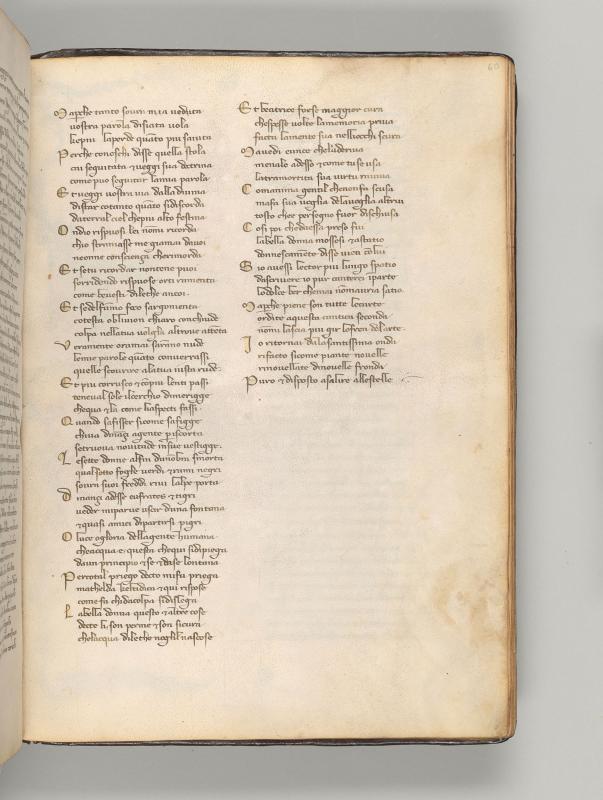 60
Ma perche tanto soura mia ueduta
uostra parola disiata uola
che piu la perde quanto piu saiuta
Perche conoschi disse quella scola
cai seguitata et ueggi sua doctrina
come puo seguitar la mia parola
Et ueggi uostra uia dalla diuina
distar cotanto quanto si discorda
da terra il ciel che piu alto festina
Ondio rispuosi lei nomi ricorda
chio straniasse me giamai da uoi
ne onne conscienza che rimorda
Et se tu ricordar non tene puoi
sorridendo rispuose orti rammenta
come beuesti di lethe ancoi
Et se dal fummo foco sargomenta
cotesta obliuion chiaro conchiude
colpa nella tua uoglia altroue attenta
Veramente oramai saranno nude
le mie parole quanto conuerrassi
quelle scourire a la tua uista rude
Et piu corrusco et con piu lenti passi
teneua il sole il cerchio di merigge
che qua et la come li aspecti fassi
Quando saffisser sicome saffigge
chi ua dinanzi a gente per iscorta
se truoua nouitade in sue uestigge
Le sette donne al fin dunombra smorta
qual sotto foglie uerdi et rami negri
soura suoi freddi riui lalpe porta
Dinanzi adesse eufrates et tigri
ueder mi parue uscir duna fontana
et quasi amici dipartirsi pigri
O luce o gloria della gente humana
che acqua e questa che qui si dispiega
da un principio et se da se lontana
Per cotal priego decto mi fu priega
mathelda chel ti dica et qui rispose
come fa chi da colpa si dislega
La bella donna questo et altre cose
decte li son per me et son sicura
che lacqua di lethe no gliel nascose
Et beatrice forse maggior cura
che spesse uolte la memoria priua
facta la mente sua nelli occhi scura
Ma uedi eunoe che la deriua
menalo adesso et come tu se usa
la tramortita sua uirtu rauuiua
Come anima gentil che non fa scusa
ma fa sua uoglia de la uoglia altrui
tosto che e per segno fuor dischiusa
Cosi poi che da essa preso fui
la bella donna mossesi et a statio
donnescamente disse uien con lui
Sio auessi lector piu lungo spatio
da scriuere io pur canterei in parte
lo dolce ber che mai non mauria satio
Ma perche piene son tutte le carte
ordite a questa cantica seconda
non mi lascia piu gir lo fren de larte
Io ritornai da la santissima onda
rifacto sicome piante nouelle
rinouellate di nouella fronda
Puro et disposto a salire alle stelle